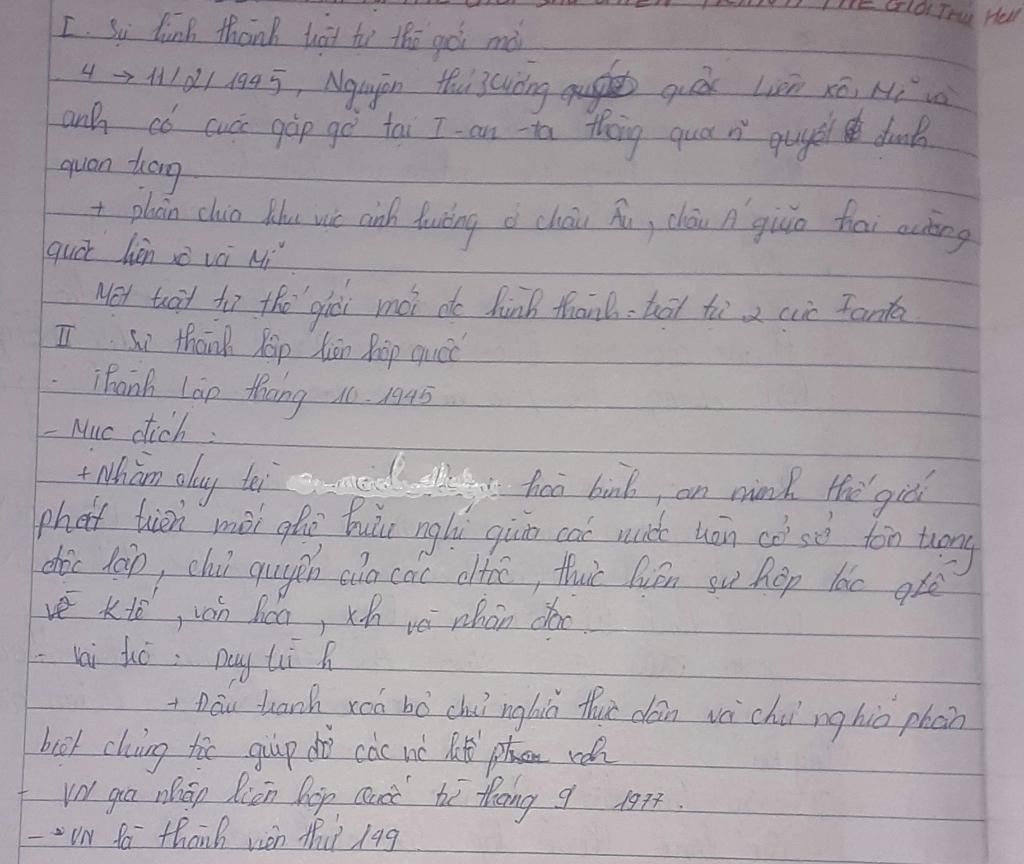 THẾ GIỚI
I. Sự hình thành trật tự thế giới mới
4 → 11/2/1945, Nguyên thủ 3 cường quốc Liên xô, Mĩ và
anh có cuộc gặp gỡ tại I-an-ta thông qua n~ quyết định
quan trọng
+ phân chia khu vực ảnh hưởng ở châu Âu, châu Á giữa hai cường
quốc liên xô và Mĩ
Một trật tự thế giới mới đc hình thành - trật tự 2 cực Ianta
II. Sự thành lập liên hợp quốc
- Thành lập tháng 10-1945
- Mục đích:
+ Nhằm duy trì hoà bình, an ninh thế giới
phát triển mối qhệ hữu nghị giữa các nước trên cơ sở tôn trọng
độc lập, chủ quyền của các dtộc, thực hiện sự hợp tác qtế
về ktế, văn hóa, xh và nhân đạo
- Vai trò: Duy trì h
+ Đấu tranh xoá bỏ chủ nghĩa thực dân và chủ nghĩa phân
biệt chủng tộc giúp đỡ các nc ktế
- VN gia nhập liên hợp Quốc từ tháng 9 1977.
-> VN là thành viên thứ 149